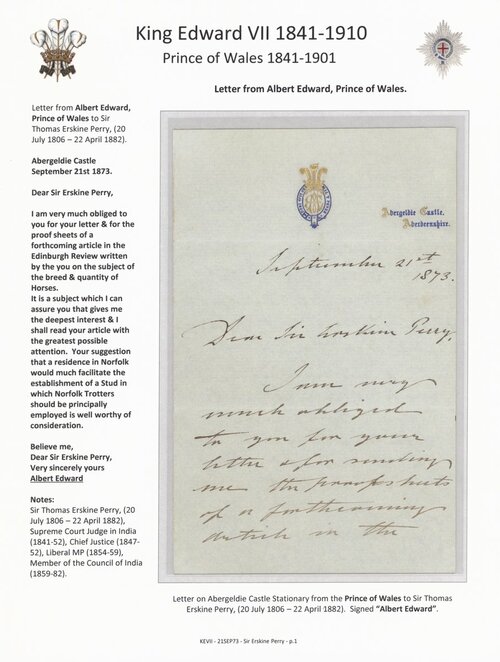 King Edward VII 1841-1910
Prince of Wales 1841-1901
Letter from Albert Edward, Prince of Wales.
Letter from Albert Edward,
Prince of Wales to Sir
Thomas Erskine Perry, (20
July 1806 – 22 April 1882).
Abergeldie Castle
September 21st 1873.
Dear Sir Erskine Perry,
I am very much obliged to
you for your letter & for the
proof sheets of a
forthcoming article in the
Edinburgh Review written
by the you on the subject of
the breed & quantity of
Horses.
It is a subject which I can
assure you that gives me
the deepest interest & I
shall read your article with
the greatest possible
attention.  Your suggestion
that a residence in Norfolk
would much facilitate the
establishment of a Stud in
which Norfolk Trotters
should be principally
employed is well worthy of
consideration.
Believe me,
Dear Sir Erskine Perry,
Very sincerely yours
Albert Edward
Notes:
Sir Thomas Erskine Perry, (20
July 1806 – 22 April 1882),
Supreme Court Judge in India
(1841-52), Chief Justice (1847-
52), Liberal MP (1854-59),
Member of the Council of India
(1859-82).
Abergeldie Castle,
Aberdeenshire.
September 21st
1873.
Dear Sir Erskine Perry,
I am very
much obliged
to you for your
letter & for sending
me the proof sheets
of a forthcoming
article in the
Letter on Abergeldie Castle Stationary from the Prince of Wales to Sir Thomas
Erskine Perry, (20 July 1806 – 22 April 1882).  Signed "Albert Edward".
KEVII - 21SEP73 - Sir Erskine Perry - p.1